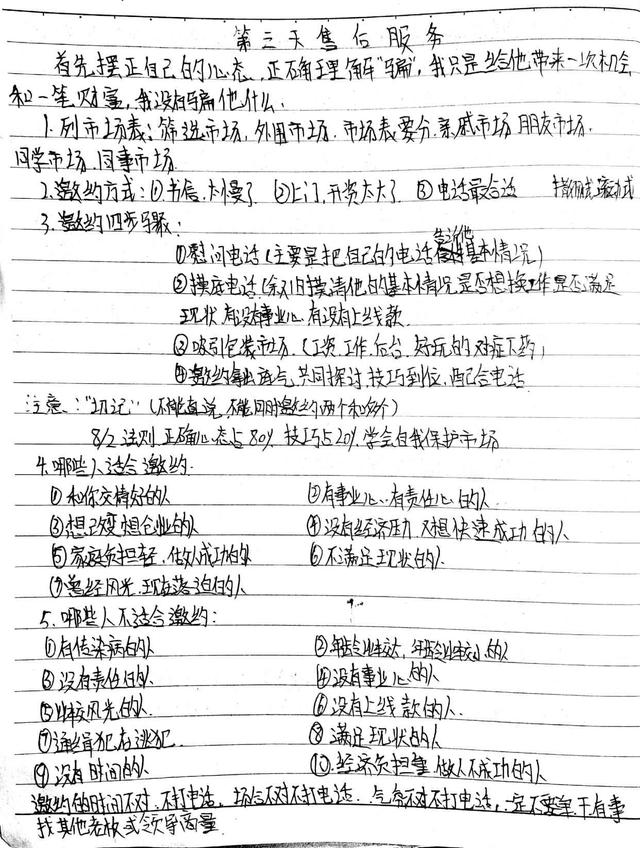 第三天售后服务
首先摆正自己的心态,正确理解"骗",我只是给他带来一次机会
和一笔财富,我没有骗他什么.
1.列市场表:筛选市场,外围市场.市场表要分.亲戚市场 朋友市场.
同学市场.同事市场.
2.邀约方式:①书信.太慢了 ②上门,开资太大了 ③电话最合适
3.邀约四步骤:
①慰问电话(主要是把自己的电话告诉他基本情况)
②摸底电话(摸清他的基本情况是否想换工作是否满足
现状.有没有事业心.有没有上线款.
③吸引包装市场.(工资.工作.后台.好玩的 对症下药)
④邀约 语气 共同探讨 技巧到位,配合电话
注意:"切记"(不能直说,不能同时邀约两个和多个)
8/2法则 正确心态占80% 技巧占20%.学会自我保护市场
4.哪些人适合邀约.
①和你交情好的人 ②有事业心.有责任心的人.
③想改变想创业的人 ④没有经济压力.又想快速成功的人
⑤家庭负担轻.做人成功的 ⑥不满足现状的人
⑦曾经风光.现在落泊的人
5.哪些人不适合邀约:
①有传染病的人 ②年龄比较大,年龄比较小的人
③没有责任的人 ④没有事业心的人.
⑤比较风光的人. ⑥没有上线款的人.
⑦通缉犯在逃犯. ⑧满足现状的人
⑨没有时间的人 ⑩.经济负担重 做人不成功的人
邀约的时间不对.不打电话,场合不对不打电话.气氛不对不打电话,一定不要
找其他老板或领导商量